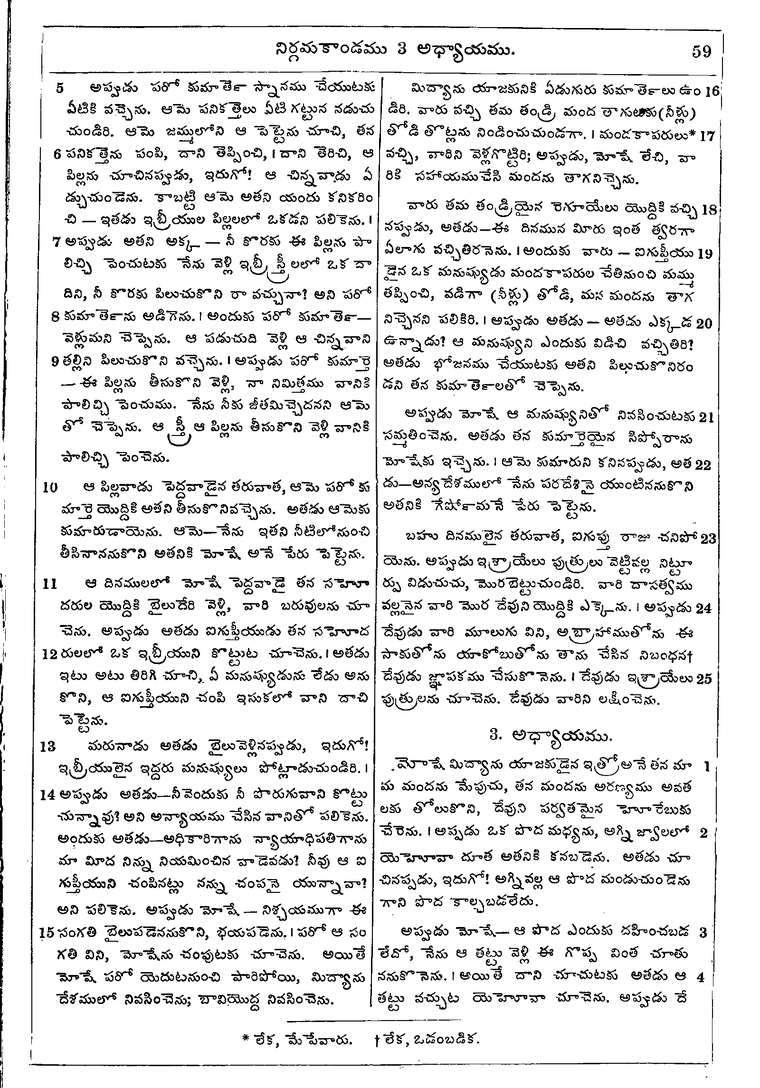 నిర్గమకాండము 3 అధ్యాయము.
59
5 అప్పుడు ఫరో కుమార్తె స్నానము చేయుటకు
ఏటికి వచ్చెను. ఆమె పనికత్తెలు ఏటి గట్టున నడుచు
చుండిరి. ఆమె జమ్ములోని ఆ పెట్టెను చూచి, తన
6 పనికత్తెను పంపి, దాని తెప్పించి, । దాని తెరిచి, ఆ
పిల్లను చూచినప్పుడు, ఇదుగో! ఆ చిన్నవాడు ఏ
డ్చుచుండెను. కాబట్టి ఆమె అతని యందు కనికరిం
చి — ఇతడు ఇబ్రీయుల పిల్లలలో ఒకడని పలికెను. ।
7 అప్పుడు అతని అక్క — నీ కొరకు ఈ పిల్లను పా
లిచ్చి పెంచుటకు నేను వెళ్లి ఇబ్రీ స్త్రీలలో ఒక దా
దిని, నీ కొరకు పిలుచుకొని రా వచ్చునా? అని ఫరో
8 కుమార్తెను అడిగెను. । అందుకు ఫరో కుమార్తె—
వెళ్లుమని చెప్పెను. ఆ పడుచుది వెళ్లి ఆ చిన్నవాని
9 తల్లిని పిలుచుకొని వచ్చెను. । అప్పుడు ఫరో కుమార్తె
— ఈ పిల్లను తీసుకొని వెళ్లి, నా నిమిత్తము వానికి
పాలిచ్చి పెంచుము. నేను నీకు జీతమిచ్చెదనని ఆమె
తో చెప్పెను. ఆ స్త్రీ ఆ పిల్లను తీసుకొని వెళ్లి వానికి
పాలిచ్చి పెంచెను.
10 ఆ పిల్లవాడు పెద్దవాడైన తరువాత, ఆమె ఫరో కు
మార్తె యొద్దికి అతని తీసుకొనివచ్చెను. అతడు ఆమెకు
కుమారుడాయెను. ఆమె—నేను ఇతని నీటిలోనుంచి
తీసినాననుకొని అతనికి మోషే అనే పేరు పెట్టెను.
11 ఆ దినములలో మోషే పెద్దవాడై తన సహో
దరుల యొద్దికి బైలుదేరి వెళ్లి, వారి బరువులను చూ
చెను. అప్పుడు అతడు ఐగుప్తీయుడు తన సహోద
12 రులలో ఒక ఇబ్రీయుని కొట్టుట చూచెను. । అతడు
ఇటు అటు తిరిగి చూచి, ఏ మనుష్యుడును లేడు అను
కొని, ఆ ఐగుప్తీయుని చంపి ఇసుకలో వాని దాచి
పెట్టెను.
13 మరునాడు అతడు బైలువెళ్లినప్పుడు, ఇదుగో!
ఇబ్రీయులైన ఇద్దరు మనుష్యులు పోట్లాడుచుండిరి. ।
14 అప్పుడు అతడు—నీవెందుకు నీ పొరుగువాని కొట్టు
చున్నావు? అని అన్యాయము చేసిన వానితో పలికెను.
అందుకు అతడు—అధికారిగాను న్యాయాధిపతిగాను
మా మీద నిన్ను నియమించిన వాడెవడు? నీవు ఆ ఐ
గుప్తీయుని చంపినట్లు నన్ను చంపనై యున్నావా?
అని పలికెను. అప్పుడు మోషే — నిశ్చయముగా ఈ
15 సంగతి బైలుపడెననుకొని, భయపడెను. । ఫరో ఆ సం
గతి విని, మోషేను చంపుటకు చూచెను. అయితే
మోషే ఫరో యెదుటనుంచి పారిపోయి, మిద్యాను
దేశములో నివసించెను; బావియొద్ద నివసించెను.
మిద్యాను యాజకునికి ఏడుగురు కుమార్తెలు ఉం 16
డిరి. వారు వచ్చి తమ తండ్రి మంద తాగుటకు (నీళ్లు)
తోడి తొట్లను నిండించుచుండగా. । మందకాపరులు* 17
వచ్చి, వారిని వెళ్లగొట్టిరి; అప్పుడు, మోషే లేచి, వా
రికి సహాయముచేసి మందను తాగనిచ్చెను.
వారు తమ తండ్రియైన రెగూయేలు యొద్దికి వచ్చి 18
నప్పుడు, అతడు—ఈ దినమున మీరు ఇంత త్వరగా
ఏలాగు వచ్చితిరనెను. । అందుకు వారు — ఐగుప్తీయు 19
డైన ఒక మనుష్యుడు మందకాపరుల చేతినుంచి మమ్ము
తప్పించి, వడిగా (నీళ్లు) తోడి, మన మందను తాగ
నిచ్చెనని పలికిరి. । అప్పుడు అతడు — అతడు ఎక్కడ 20
ఉన్నాడు? ఆ మనుష్యుని ఎందుకు విడిచి వచ్చితిరి?
అతడు భోజనము చేయుటకు అతని పిలుచుకొనిరం
డని తన కుమార్తెలతో చెప్పెను.
అప్పుడు మోషే ఆ మనుష్యునితో నివసించుటకు 21
సమ్మతించెను. అతడు తన కుమార్తెయైన సిప్పోరాను
మోషేకు ఇచ్చెను. । ఆమె కుమారుని కనినప్పుడు, అత 22
డు—అన్యదేశములో నేను పరదేశినై యుంటిననుకొని
అతనికి గేర్షోమనే పేరు పెట్టెను.
బహు దినములైన తరువాత, ఐగుప్తు రాజు చనిపో 23
యెను. అప్పుడు ఇశ్రాయేలు పుత్రులు వెట్టివల్ల నిట్టూ
ర్పు విడుచుచు, మొరబెట్టుచుండిరి. వారి దాసత్వము
వల్లనైన వారి మొర దేవుని యొద్దికి ఎక్కెను. । అప్పుడు 24
దేవుడు వారి మూలుగు విని, అబ్రాహాముతోను ఈ
సాకుతోను యాకోబుతోను తాను చేసిన నిబంధన†
దేవుడు జ్ఞాపకము చేసుకొనెను. । దేవుడు ఇశ్రాయేలు 25
పుత్రులను చూచెను. దేవుడు వారిని లక్షించెను.
3. అధ్యాయము.
మోషే మిద్యాను యాజకుడైన ఇత్రో అనే తన మా 1
మ మందను మేపుచు, తన మందను అరణ్యము అవత
లకు తోలుకొని, దేవుని పర్వతమైన హోరేబుకు
చేరెను. । అప్పుడు ఒక పొద మధ్యను, అగ్ని జ్వాలలో 2
యెహోవా దూత అతనికి కనబడెను. అతడు చూ
చినప్పుడు, ఇదుగో! అగ్నివల్ల ఆ పొద మండుచుండెను
గాని పొద కాల్చబడలేదు.
అప్పుడు మోషే— ఆ పొద ఎందుకు దహించబడ 3
లేదో, నేను ఆ తట్టు వెళ్లి ఈ గొప్ప వింత చూతు
ననుకొనెను. । అయితే దాని చూచుటకు అతడు ఆ 4
తట్టు వచ్చుట యెహోవా చూచెను. అప్పుడు దే
* లేక, మేపేవారు. † లేక, ఒడంబడిక.